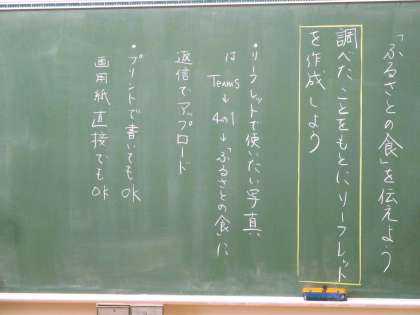 「ふるさとの食」を伝えよう
調べたことをもとにリーフレット
を作成しよう
・リーフレットで使いたい写真
は Teams→4の1→「ふるさとの食」に
返信でアップロード
・プリントで書いてもOK
画用紙直接でもOK